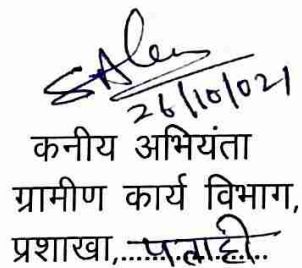 26/10/021
कनीय अभियंता
ग्रामीण कार्य विभाग,
प्रशाखा,..................